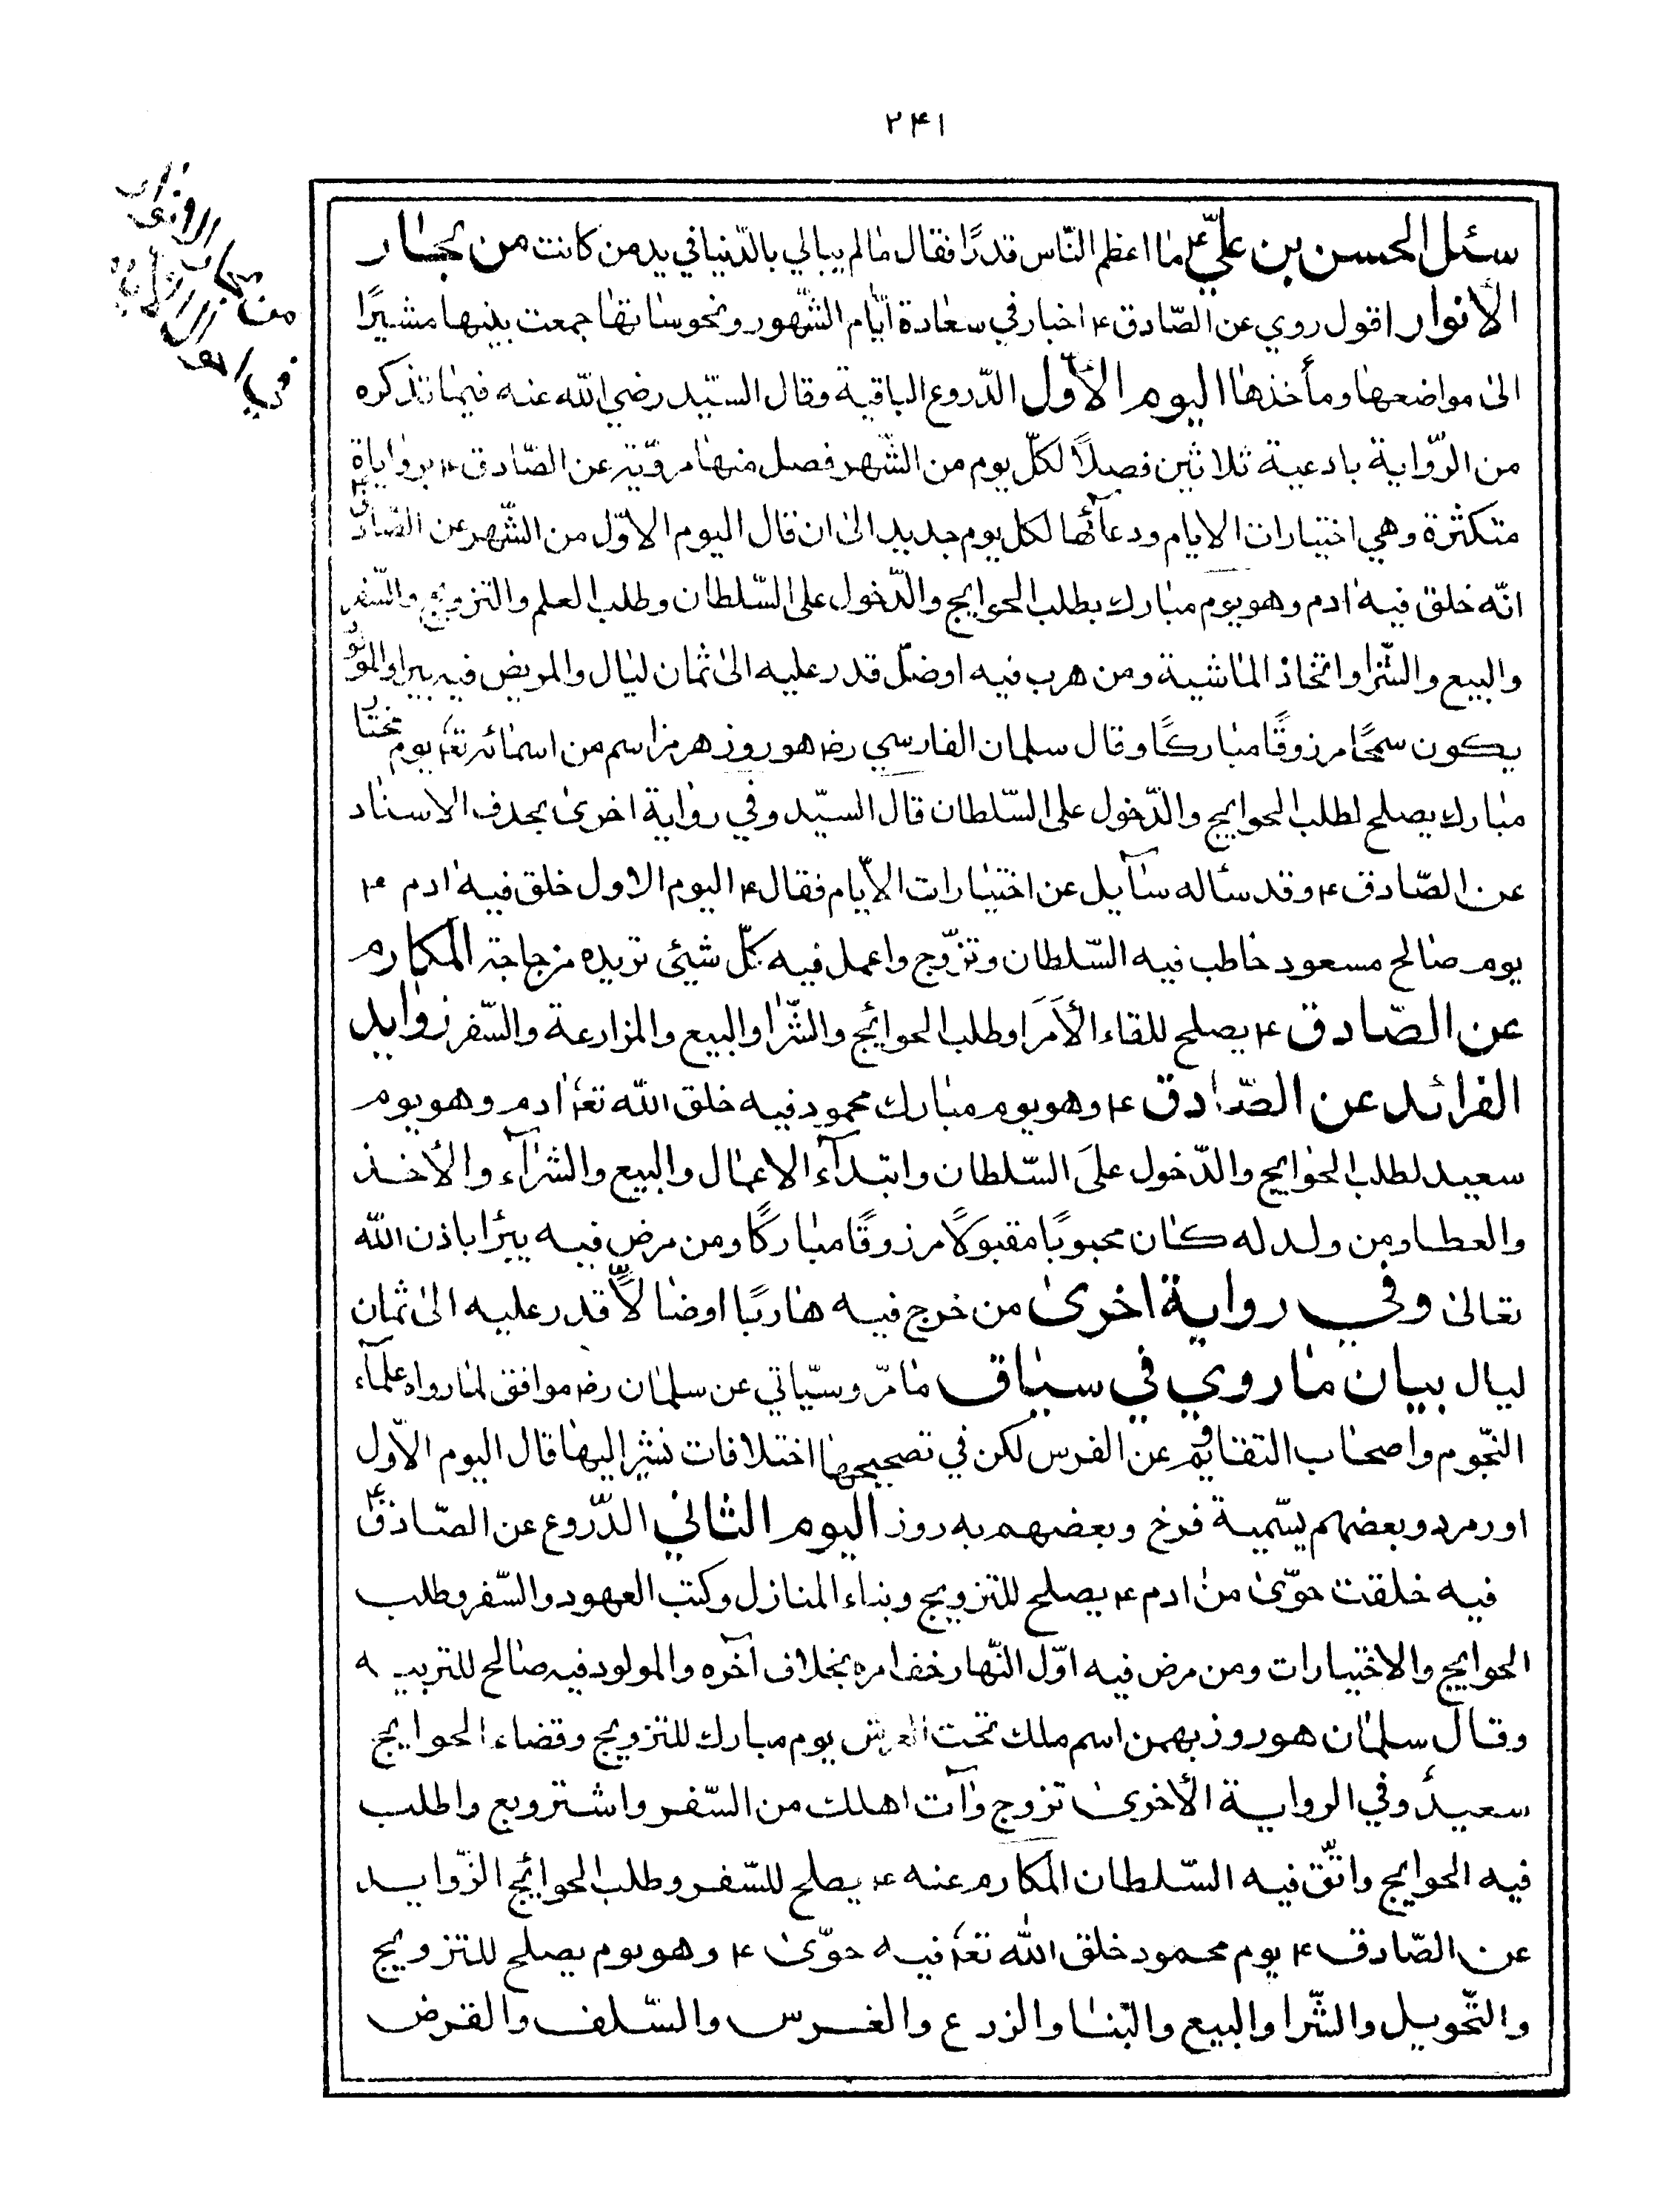 ۲۴۱
سئل الحسن بن عليّ ع ما اعظم النّاس قدرًا فقال ما لم يبالي بالدّنيا في يد من كانت من بحار
الأنوار اقول روي عن الصّادق ع اخبار في سعادة ايّام الشّهور ونحوساتها جمعت بينها مشيرًا
الى مواضعها ومأخذها اليوم الأوّل الدّروع الباقية وقال السيّد رضي الله عنه فيما نذكره
من الرّواية بادعية ثلاثين فصلاً لكلّ يوم من الشّهر فصل منها مرويّة عن الصّادق ع بروايات
متكثرة وهي اختيارات الايام ودعائها لكل يوم جديد الى ان قال اليوم الاوّل من الشّهر عن الصّادق
انّه خلق فيه ادم وهو يوم مبارك بطلب الحوايج والدّخول على السّلطان وطلب العلم والتزويج والسّفر
والبيع والشّرا واتخاذ الماشية ومن هرب فيه او ضلّ قدر عليه الى ثمان ليال والمريض فيه يبرا والمولود
يكون سمحًا مرزوقًا مباركًا وقال سلمان الفارسي رض هو روز هرمز اسم من اسمائه تع يوم مختار
مبارك يصلح لطلب الحوايج والدّخول على السّلطان قال السيّد وفي رواية اخرى بحذف الاسناد
عن الصّادق ع وقد سئاله سآيل عن اختيارات الأيّام فقال ع اليوم الاول خلق فيه ادم ع
يوم صالح مسعود خاطب فيه السّلطان وتزوّج واعمل فيه كلّ شيئ تريده من حاجة المكارم
عن الصّادق ع يصلح للقاء الأمَرا وطلب الحوائج والشّرا والبيع والمزارعة والسّفر زوايد
الفرائد عن الصّادق ع وهو يوم مبارك محمود فيه خلق الله تع ادم وهو يوم
سعيد لطلب الحوايج والدّخول علىَ السّلطان وابتدآء الاعمال والبيع والشرآء والأخذ
والعطا ومن ولد له كان محبوبًا مقبولًا مرزوقًا مباركًا ومن مرض فيه يبرا باذن الله
تعالى وفي رواية اخرى من خرج فيه هاربًا او ضالاًّ قدر عليه الى ثمان
ليال بيان ما روي في سياق ما مرّ وسيّاتي عن سلمان رض موافق لما رواه علمآء
النّجوم واصحاب التقاويم عن الفرس لكن في تصحيحها اختلافات نشير اليها قال اليوم الاوّل
اورمرد وبعضهم يسّمية فرخ وبعضهم به روز اليوم الثاني الدّروع عن الصّادق ع
فيه خلقت حوّى من ادم ع يصلح للتزويج وبناء المنازل وكتب العهود والسّفر وطلب
الحوايج والاختيارات ومن مرض فيه اوّل النّهار خف امره بخلاف آخره والمولود فيه صالح للتربيه
وقال سلمان هو روز بهمن اسم ملك تحت العرش يوم مبارك للتزويج وقضاء الحوايج
سعيدٌ وفي الرواية الأخرى تزوج وآت اهلك من السّفر واشتر وبع واطلب
فيه الحوايج واتّق فيه السّلطان المكارم عنه ع يصلح للسّفر وطلب الحوائج الزّوايد
عن الصّادق ع يوم محمود خلق الله تع فيه حوّى ع وهو يوم يصلح للتزويج
والتّحويل والشّرا والبيع والبّنا والزرع والغرس والسّلف والقرض
من كتاب
في